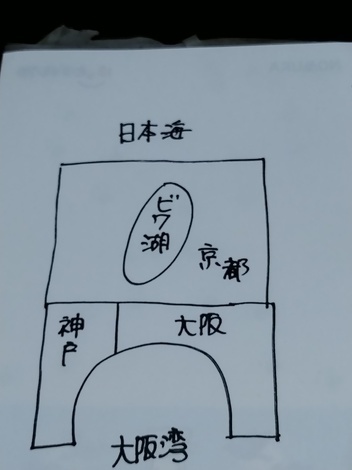 日本海
ビワ湖
京都
神戸
大阪
大阪湾